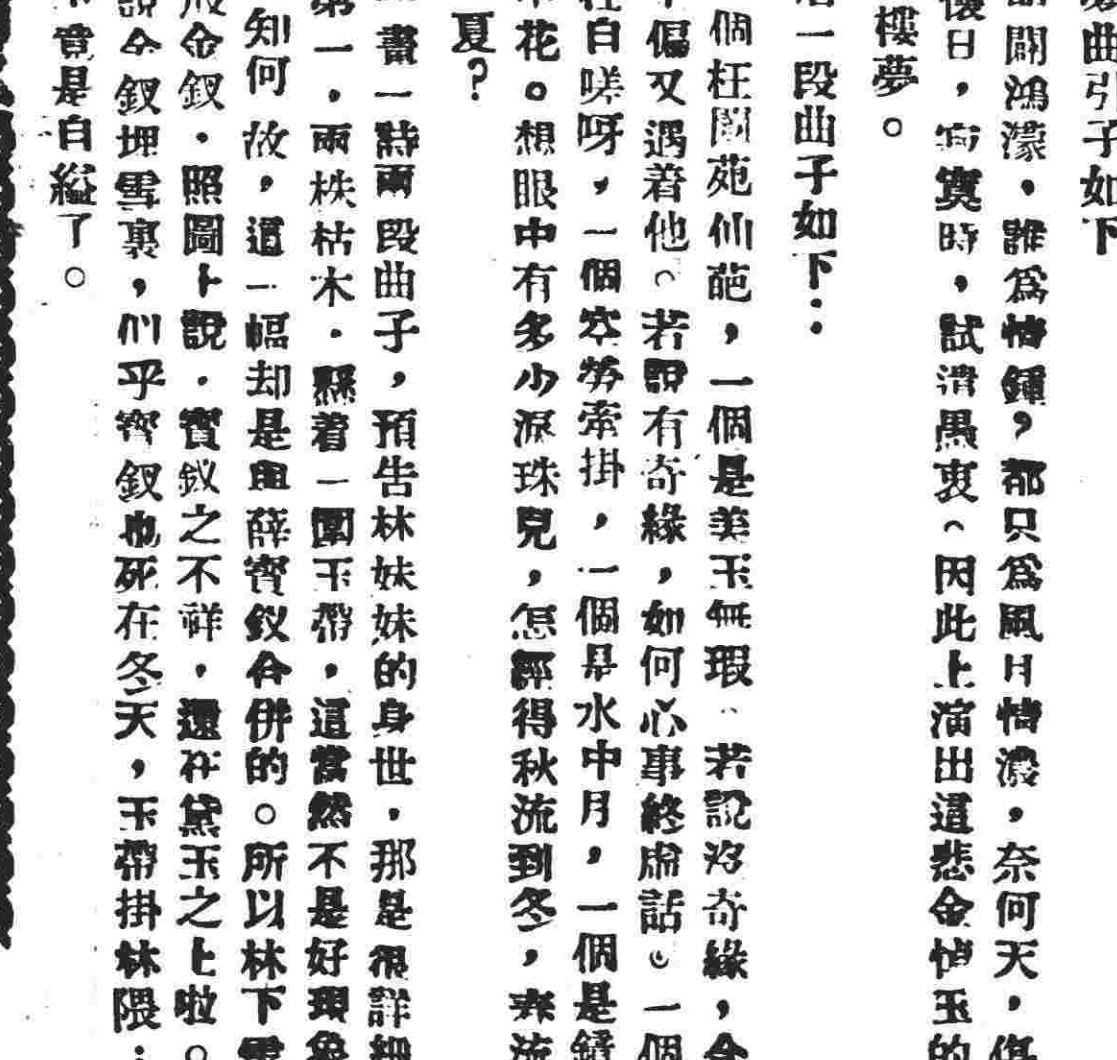 曲引子如下
開鴻濛，誰為情鍾，都只為風月情濃，奈何天，傷
懷日，寂寞時，試遣愚衷。因此上演出這悲金悼玉的
樓夢。
一段曲子如下：
個枉閬苑仙葩，一個是美玉無瑕。若說沒奇緣，今
偏又遇着他。若說有奇緣，如何心事終虛話。一個
枉自嗟呀，一個空勞牽掛，一個是水中月，一個是鏡
花。想眼中有多少淚珠兒，怎經得秋流到冬，春流
夏？
畫一詩兩段曲子，預告林妹妹的身世，那是很詳細
第一，兩株枯木，懸着一圍玉帶，這當然不是好現象
知何故，這一幅却是與薛寶釵合併的。所以林下雪
金釵，照圖上說，寶釵之不祥，還在黛玉之上啦。
說金釵埋雪裏，似乎寶釵也死在冬天，玉帶掛林隈：
竟是自縊了。